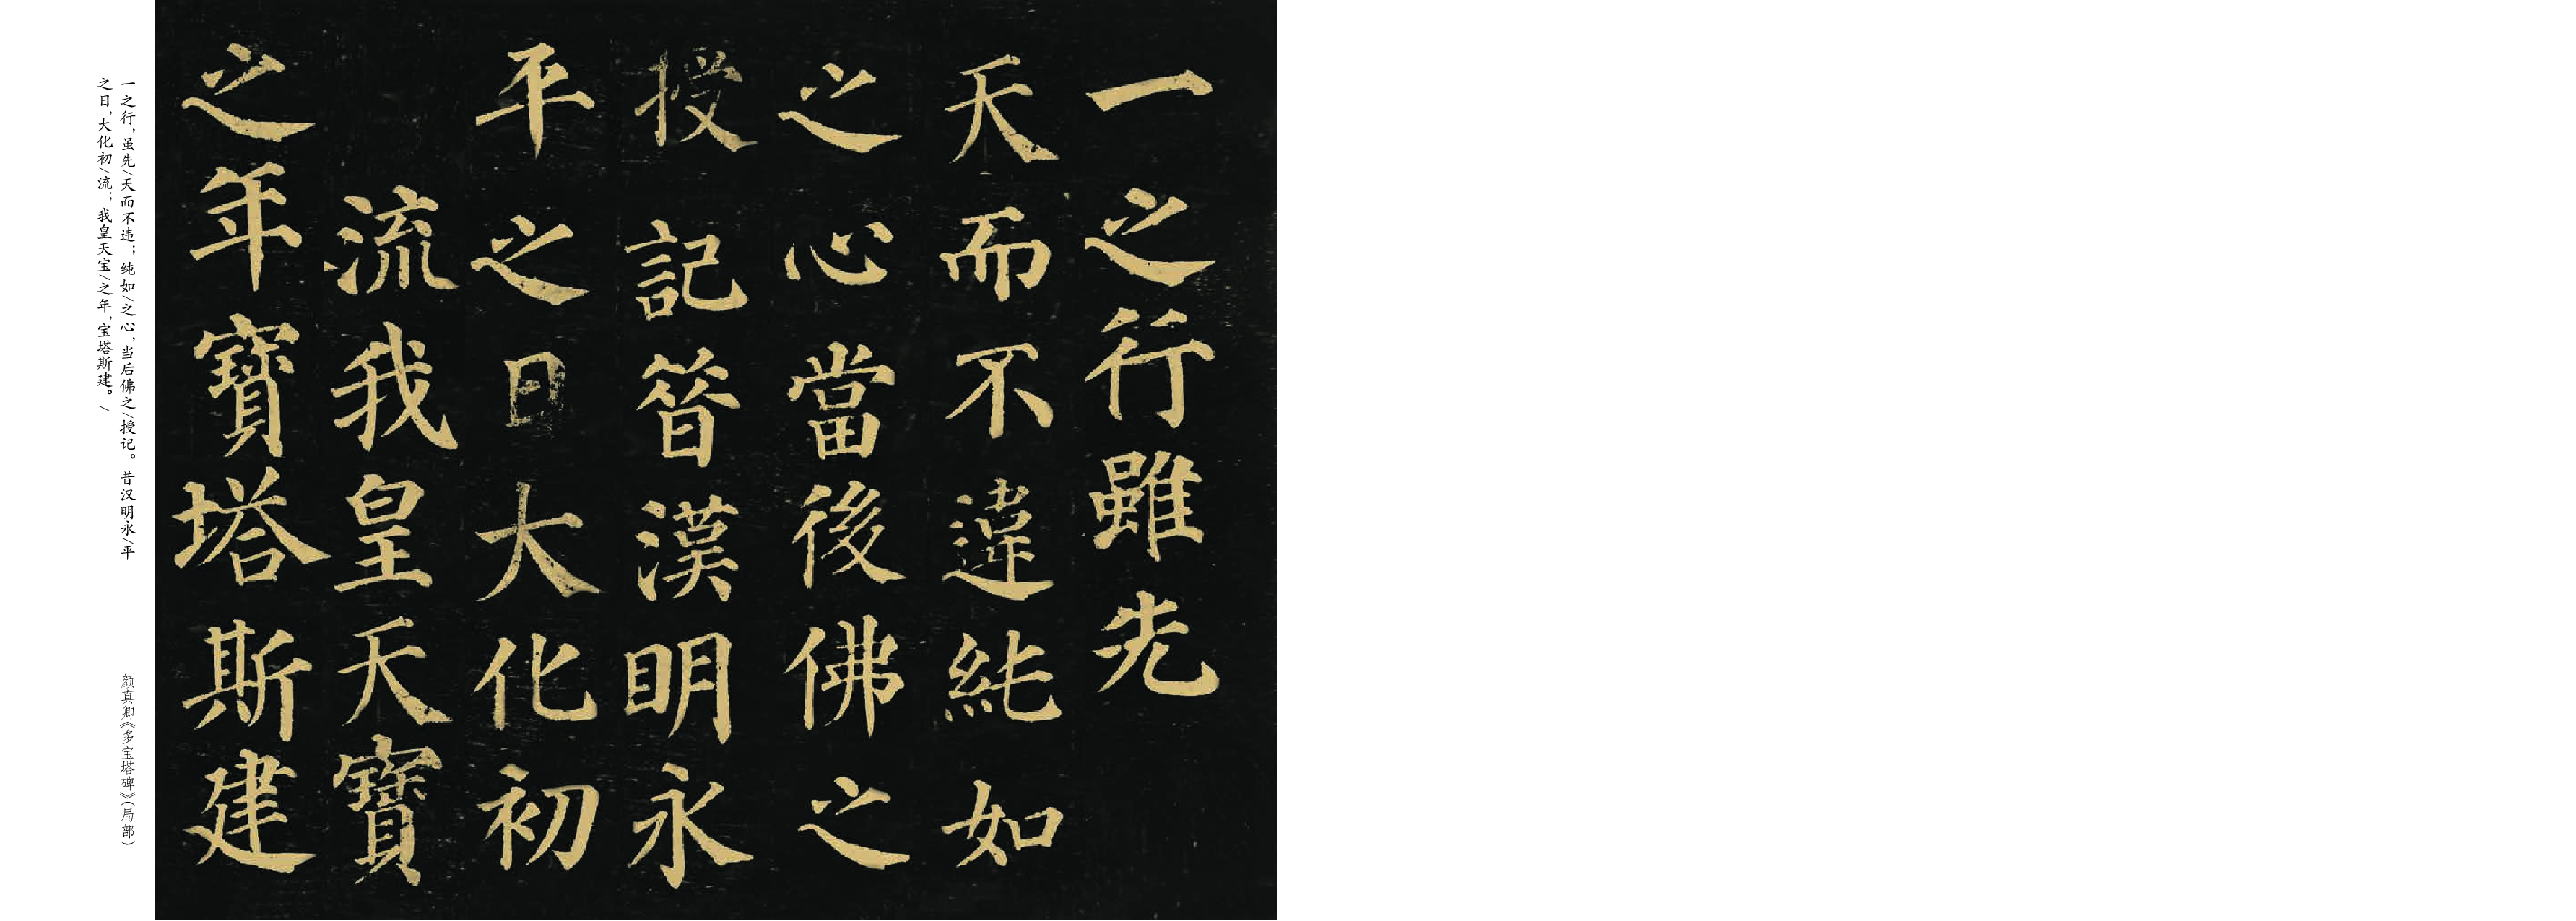 一之行雖先
天而不違純如
之心當後佛之
授記昔漢明永
平之日大化初
流我皇天寶
之年寶塔斯建
一之行，虽先/天而不违；纯如/之心，当后佛之/授记。昔汉明永/平
之日，大化初/流；我皇天宝/之年，宝塔斯建。/
颜真卿《多宝塔碑》(局部)